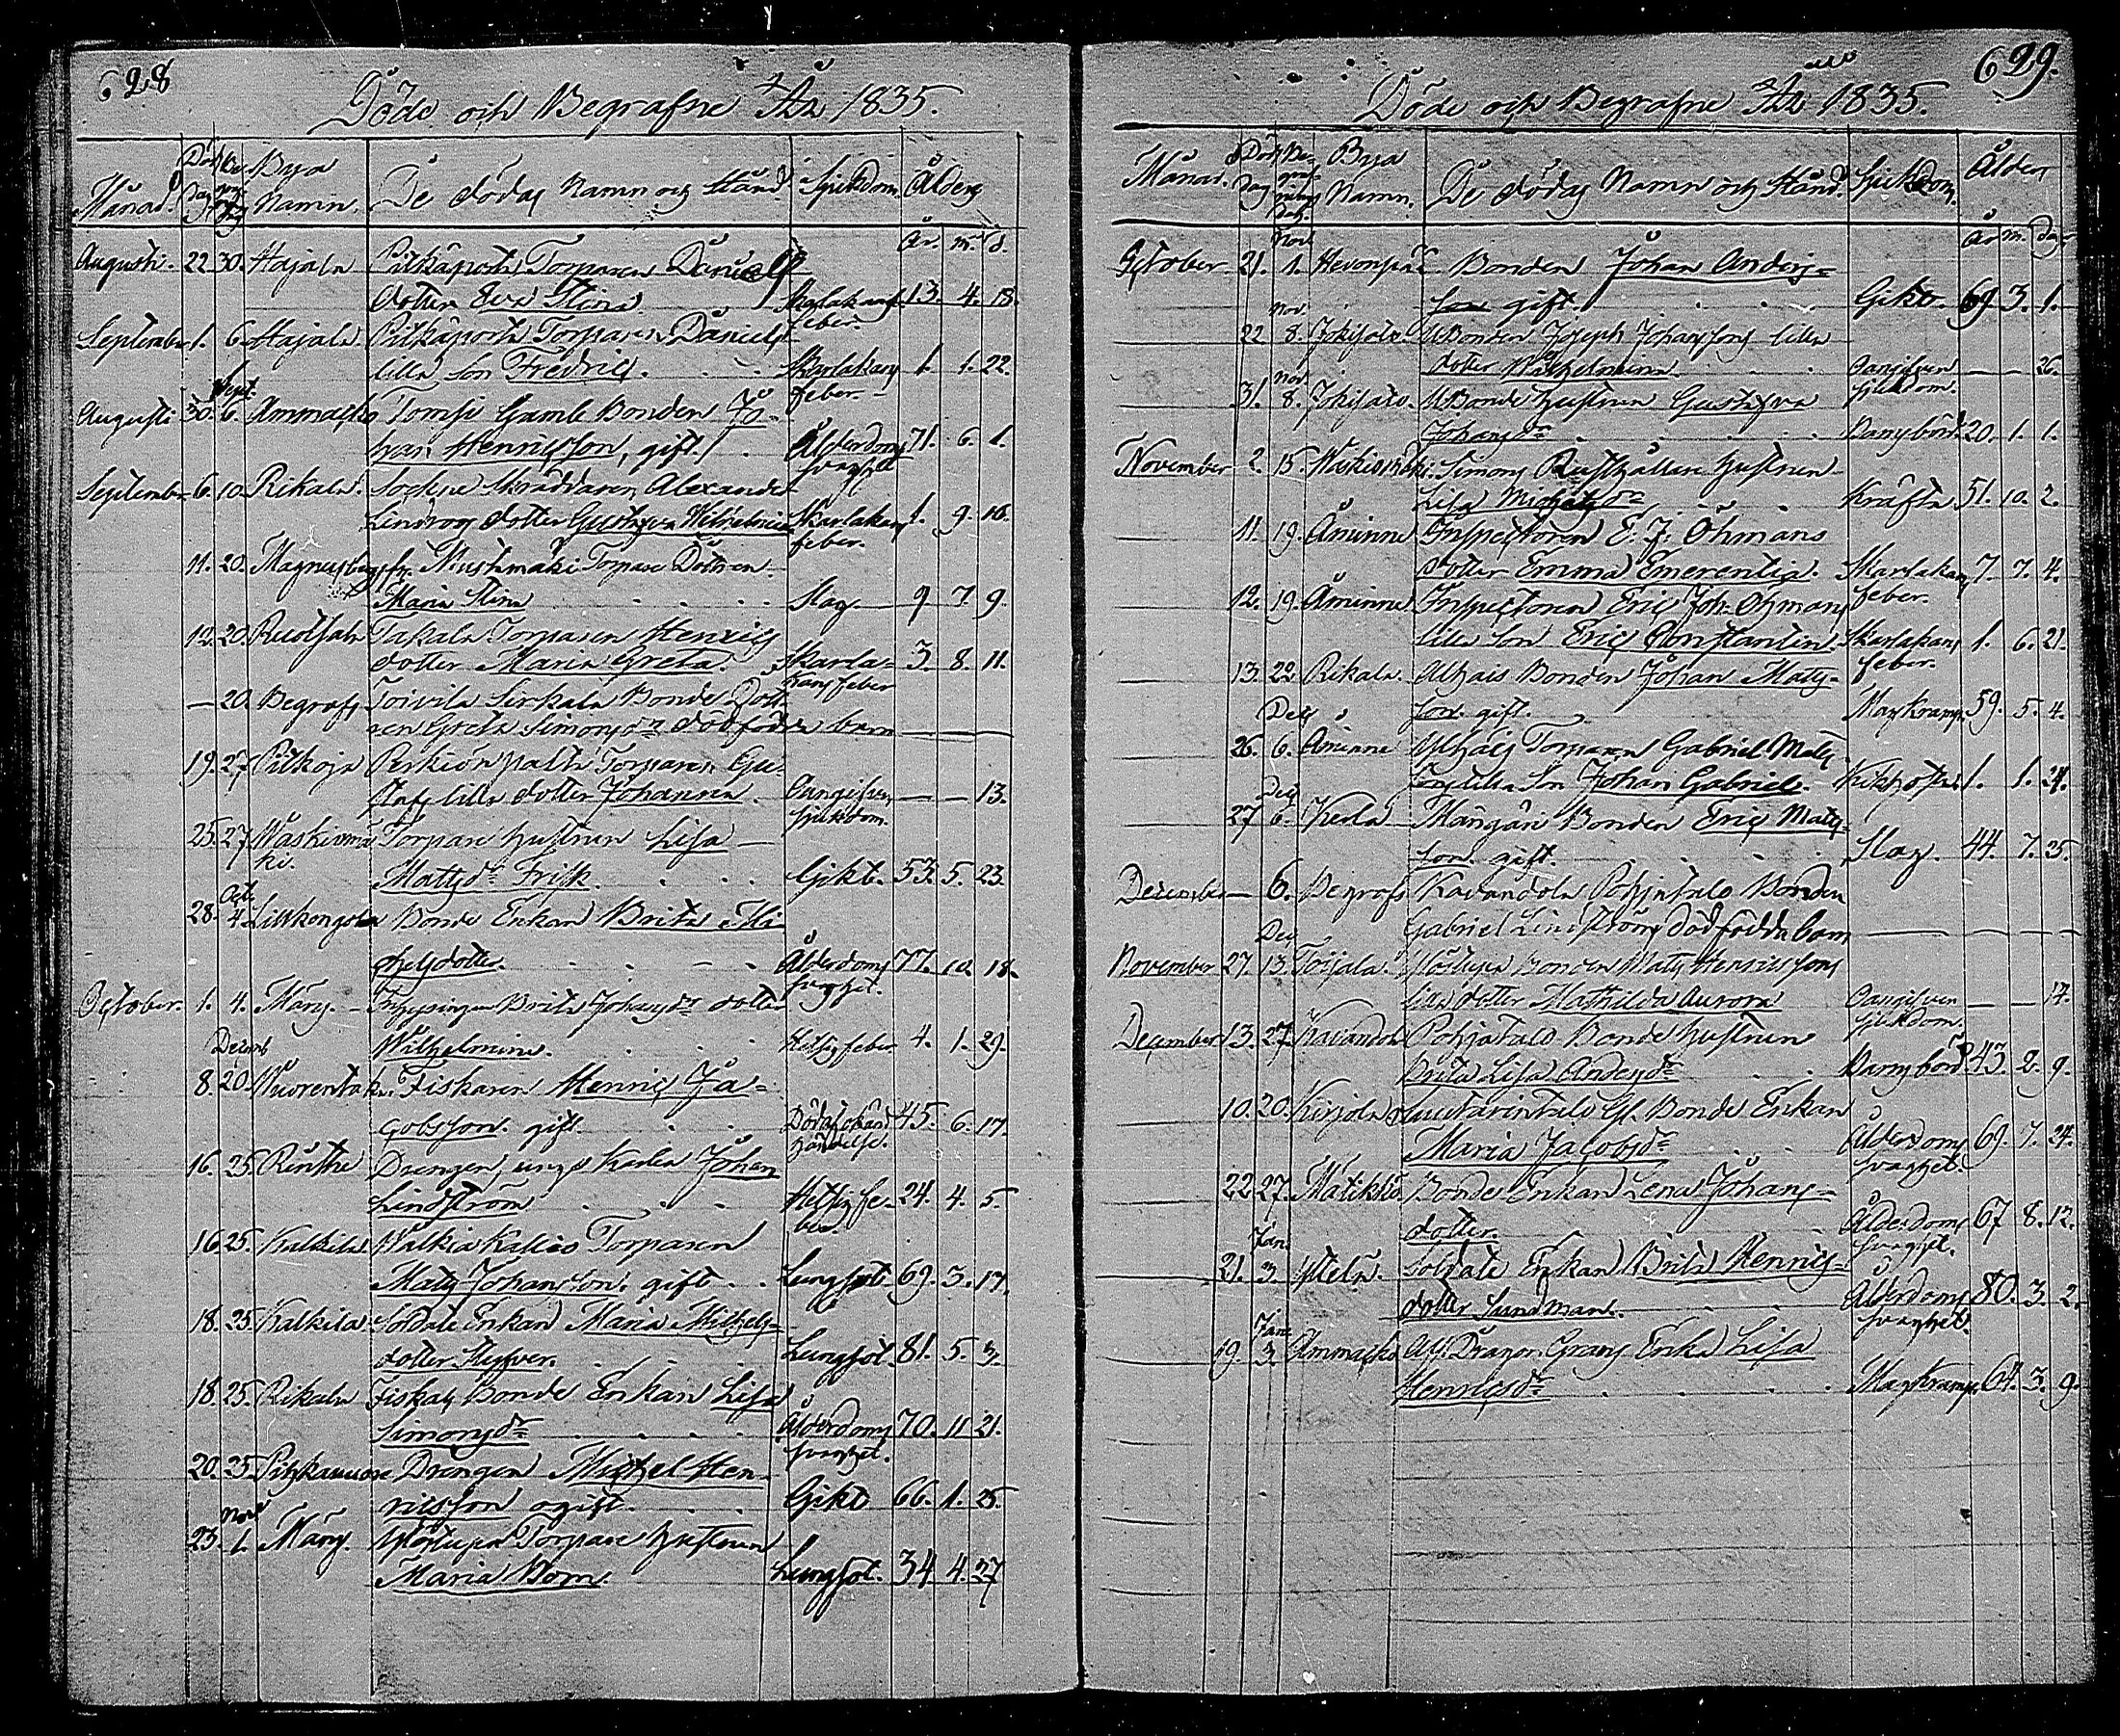 628
Döde och Begrafne År 1835.
Månad. Död Dag Be graf ning dag Bya Namn. De dödas Namn och stånd Sjukdom Ålder
År. m. d.
Augusti. 22 30. Hajala Pitkäporta Torparen Daniels
dotter Eva Stina Skarlakans 13. 4. 18.
feber.
September 1. 6. Hajala Pitkäporta Torparen Daniels
lilla Son Fredric. Skarlakans 1. 1. 22.
Sept. feber.
Augusti 30. 6. Ammasko Tomsi Gamle Bonden Jo-
han Henricsson, gift. Ålderdoms 71. 6. 1.
svaghet
September 6. 10. Rikala. Sockne Skräddaren Alexander
Lindroos dotter Gustafva Wilhelmina Skarlakans 1. 9. 16.
feber.
11. 20. Magnusberg Mustamäki Torpare Dottren
Maria Stina Slag. 9 7. 9.
12. 20. Ruotsala Takala Torparen Henrics
dotter Maria Greta. Skarla- 3. 8. 11.
kans feber
— 20. Begrofs Toivila Sirkala Bonde Dott
ren Greta Simonsdr dödfödda barn
19. 27 Pitkoja torparen Gu-
stafs lilla dotter Johanna. Oangifven — — 13.
sjukdom.
25. 27 Waskiomä Torpare Hustrun Lisa
ki. Mattsdr Frisk. Gikt. 53. 5. 23.
Oct.
28. 4 Bonde Enkan Brita Mi
chelsdotter. Ålderdoms 77. 10. 18.
svaghet.
October. 1. 4. Märy. Inhysingen Brita Johansdr dotter
Wilhelmina. Hetsig feber 4. 1. 29.
Decemb
8. 20. Wuorentaka Fiskaren Henric Ja-
cobsson. gift. 45. 6. 17.
händelse.
16. 25 Drengen, unge Karlen Johan
Lindström Hetsig fe- 24. 4. 5.
ber.
16. 25. Kalkila Torparen
Matts Johansson. gift. Lungsot 69. 3. 17.
18. 25. Kalkila Soldate Enkan Maria Michels-
dotter Styfver. Lungsot. 81. 5. 3.
18. 25. Rikala Fiskas Bonde Enkan Lisa
Simonsdr Ålderdoms 70. 11 21.
svaghet.
20. 25 Drengen Michel Hen-
ricsson ogift. Gikt 66. 1. 25.
Nov.
23. 1. Märy. Torpare Hustrun
Maria Bom. Lungsot. 34. 4. 27

629.
Döde och Begrafne År 1835.
Månad. Död Dag Be-graf nings dag. Bya Namn. De dödas Namn och stånd. Sjukdom. Ålder
Nov. År m. dag
October 21. 1. Bonden Johan Anders-
son gift. Gikt. 69 3. 1.
Nov.
22 8. Jokisalo Bonden Joseph Johanssons lilla
dotter Wilhelmina. Oangifven — — 26.
Nov. sjukdom.
31. 8. Jokisalo. Bonde Hustrun Gustafva
Johansdr Barnsbörd 20. 1. 1.
November 2. 15 Waskiomäki Simons Rusthållare Hustrun
Lisa Michelsdr Kräfta 51. 10. 2.
11. 19. Åminne Inspectoren E. J. Öhmans
dotter Emma Emerentia. Skarlakans 7. 7. 4.
feber.
12. 19. Åminne Inspectoren Eric Joh. Öhmans
lilla Son Eric Constantin. Skarlakans 1. 6. 21.
feber.
13. 22 Rikala. Uhais Bonden Johan Matts-
son. gift. Magkramp 59. 5. 4.
Dec.
26. 6. Åminne Torparen Gabriel Matts
sons lilla Son Johan Gabriel. Kikhosta 1. 1. 24.
Dec
27 6. Kerla Bonden Eric Matts-
son. gift. Slag. 44. 7. 25.
December — 6. Begrofs Pohjatalo Bonden
Gabriel Lindströms Dödfödda barn
Dec
November 27. 13. Bonden Matts Henricssons
lilla dotter Mathilda Aurora Oangifven — — 14.
sjukdom.
December 13. 27 Pohjatalo Bonde Hustrun
Brita Lisa Andersdr Barnsbörd 43. 2. 9.
10. 20. Kirjola Gl. Bonde Enkan
Maria Jacobsdr Ålderdoms 69. 7. 24.
svaghet.
22 27. Bonde Enkan Lena Johans-
dotter. Ålderdoms 67 8. 12.
Jan. svaghet.
21. 3. Soldate Enkan Brita Henrics-
dotter Sundman. Ålderdoms 80. 3. 2.
Jan. svaghet.
19. 3. Ammasko Afl. Dragon Grans Enka Lisa
Henricsdr Magkramp. 64. 3. 9.